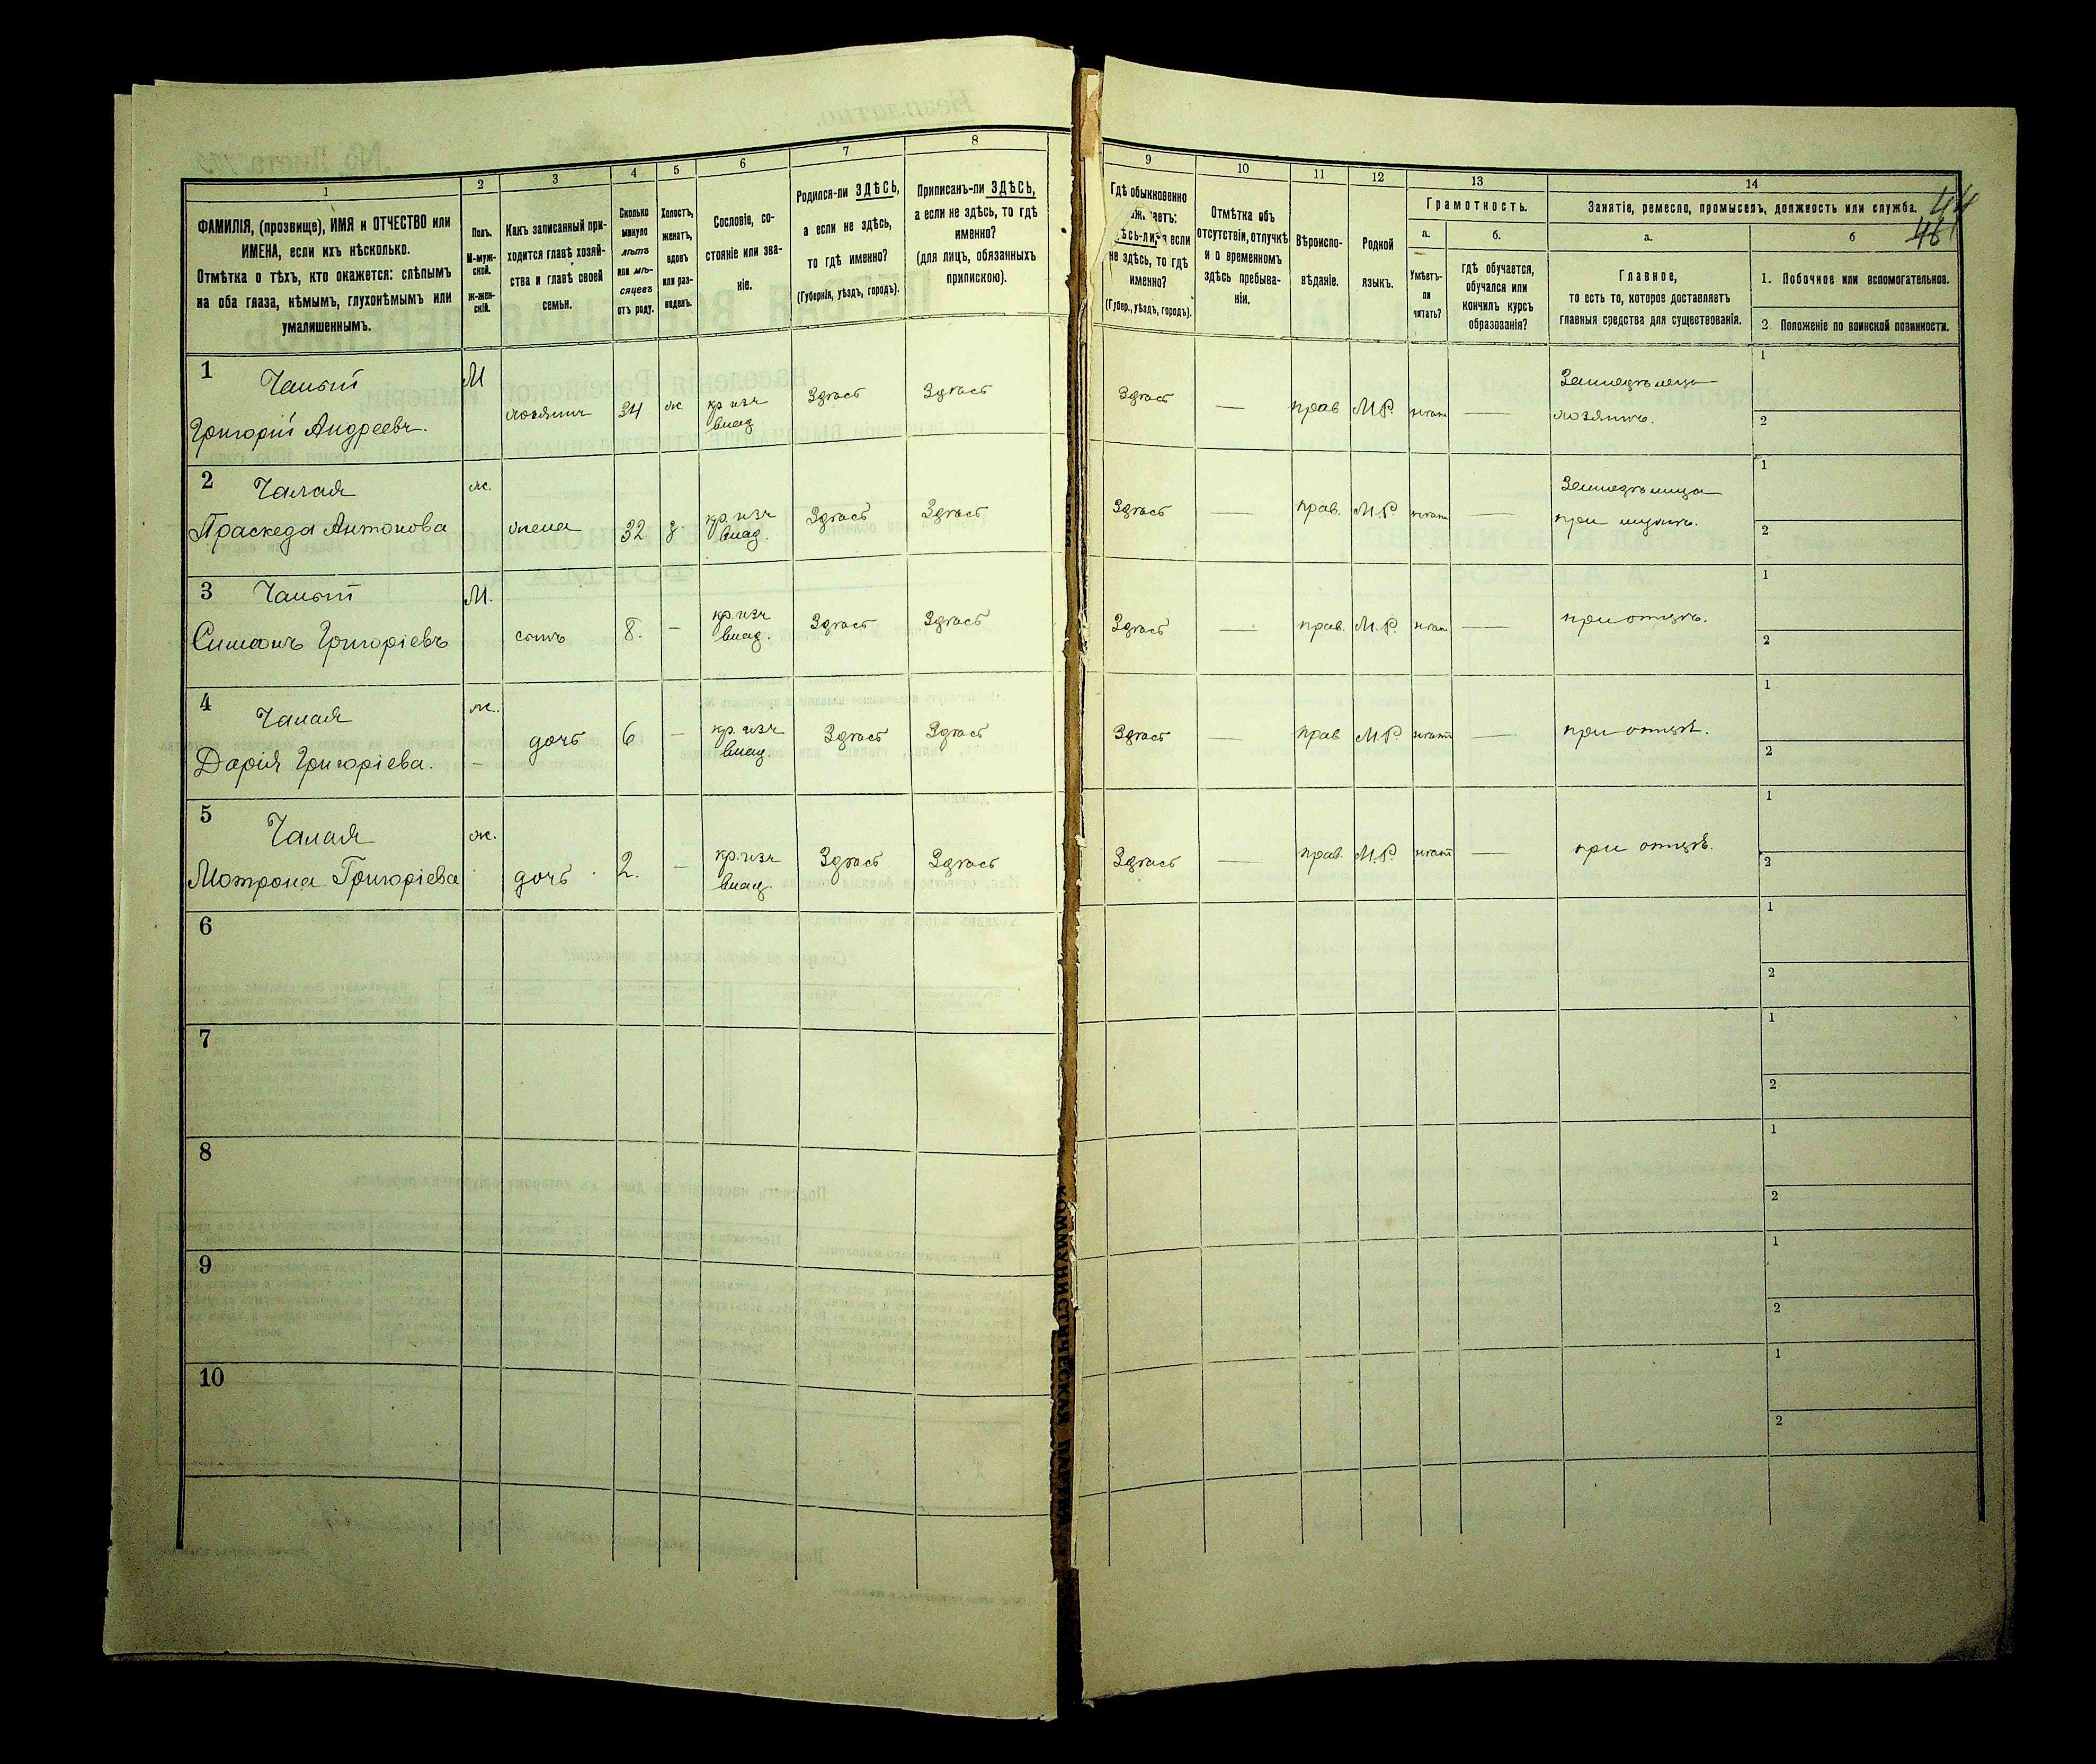 1
2
3
4
5
6
7
8
ФАМИЛІЯ, (прозвище), ИМЯ и ОТЧЕСТВО или
ИМЕНА, если ихъ нѣсколько.
Отмѣтка о тѣхъ, кто окажется: слѣпымъ
на оба глаза, нѣмымъ, глухонѣмымъ или
умалишеннымъ.
Полъ.
М-муж-
ской.
ж-жен-
скій.
Какъ записанный при-
ходится главѣ хозяй-
ства и главѣ своей
семьи.
Сколько
минуло
лѣтъ
или мѣ-
сяцевъ
отъ роду.
Холостъ,
женатъ,
вдовъ
или раз-
веденъ.
Сословіе, со-
стояніе или зва-
ніе.
Родился-ли ЗДѢСЬ,
а если не здѣсь,
то гдѣ именно?
(Губернія, уѣздъ, городъ).
Приписанъ-ли ЗДѢСЬ,
а если не здѣсь, то гдѣ
именно?
(для лицъ, обязанныхъ
припискою).
1
Чалый
Григорій Андреевъ.
М
хозяинъ
34
ж
кр изъ
влад
Здѣсь
Здѣсь
2
Чалая
Праскеда Антонова
ж.
жена
32
з
кр. изъ
влад.
Здѣсь
Здѣсь
3
Чалый
Симонъ Григоріевъ
М.
сынъ
8.
–
кр. изъ
влад.
Здѣсь
Здѣсь
4
Чалая
Дарія Григоріева.
ж.
–
дочь
6
–
кр. изъ
влад.
Здѣсь
Здѣсь
5
Чалая
Мотрона Григоріева
ж.
дочь
2.
–
кр. изъ
влад.
Здѣсь
Здѣсь
6
7
8
9
10
9
10
11
12
13
14
44
46
Гдѣ обыкновенно
не здѣсь, то гдѣ
именно?
(Губер., уѣздъ, городъ).
Отмѣтка объ
отсутствіи, отлучкѣ
и о временномъ
здѣсь пребыва-
ніи.
Вѣроиспо-
вѣданіе.
Родной
языкъ.
Грамотность.
а.
б.
Умѣетъ-
ли
читать?
гдѣ обучается,
обучался или
кончилъ курсъ
образованія?
Занятіе, ремесло, промыселъ, должность или служба.
а.
б
Главное,
то есть то, которое доставляетъ
главныя средства для существованія.
1. Побочное или вспомогательное.
2 Положеніе по воинской повинности.
Здѣсь
—
прав
М.Р.
нѣтъ
—
Земледѣлецъ
хозяинъ.
1
2
Здѣсь
—
прав.
М.Р.
нѣтъ
—
Земледѣлица
при мужѣ.
1
2
Здѣсь
—
прав.
М.Р.
нѣтъ
—
при отцѣ.
1
2
Здѣсь
—
прав
М.Р.
нѣтъ
—
при отцѣ.
1
2
Здѣсь
—
прав.
М.Р.
нѣтъ
—
при отцѣ.
1
2
1
2
1
2
1
2
1
2
1
2